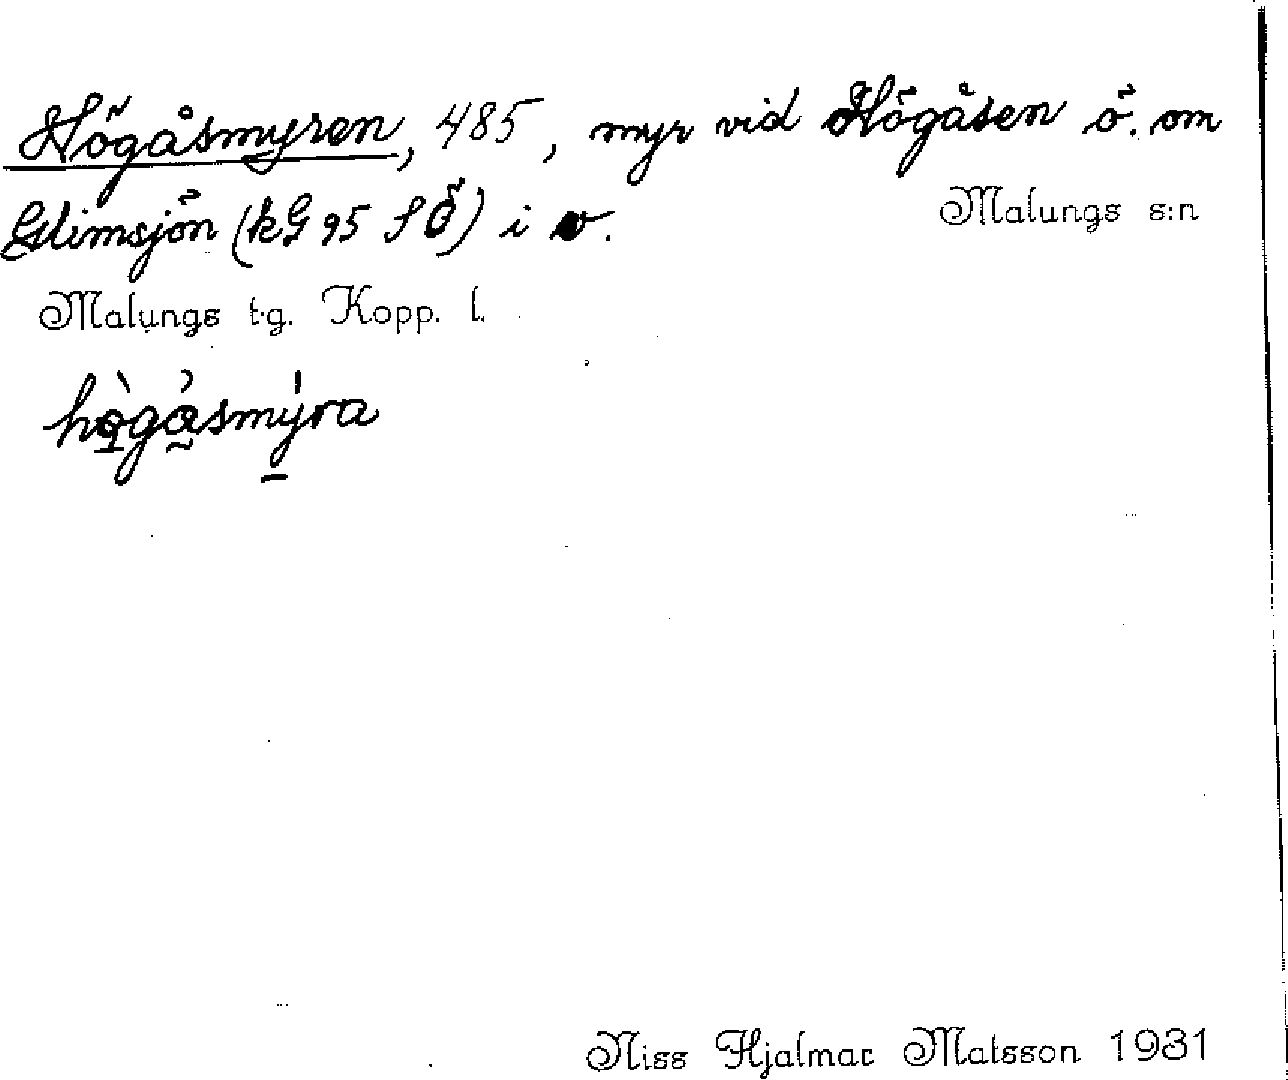 Högåsmyren, 485, myr vid Högåsen ö. om
Glimsjön (kG 95 SÖ) i v.
Malungs s:n
Malungs t.g. Kopp. l.
hògåsmýra
Niss Hjalmar Matsson 1931